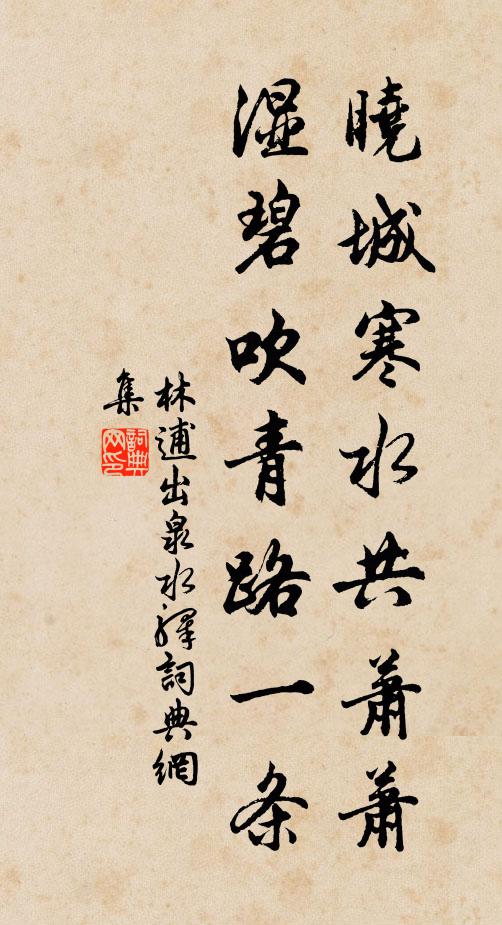 曉城寒水共蕭蕭
濕碧吹青路一条
林逋出泉水驛詞典網
集
詞典
网印